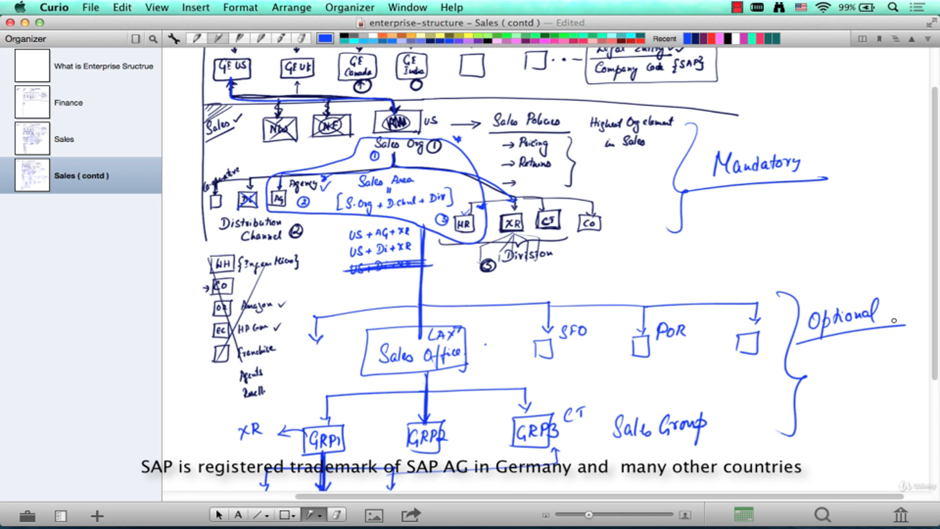 Curio File Edit View Insert Format Arrange Organizer Window Help 99%
enterprise-structure - Sales ( contd ) — Edited
Organizer
Recent
What is Enterprise Sructure
Finance
Sales
Sales ( contd )
GE US
GE UK
GE Canada
GE India
Legal Entity
Company Code {SAP}
Sales
US
Sales Policies
→ Pricing
→ Returns
→
Highest Org element
in Sales
Mandatory
Sales Org 1
Agency
Sales Area
[S.Org + D.Chnl + Div]
AG
HR
XR
CT
CO
Distribution
Channel 2
Division
3
US + AG + XR
US + Di + XR
US + Di + XR
WH
CO
Amazon
EC
Franchise
Agents
Optional
LAX
Sales Office
SFO
POR
XR
GRP1
GRP2
GRP3
CT
Sales Group
SAP is registered trademark of SAP AG in Germany and many other countries